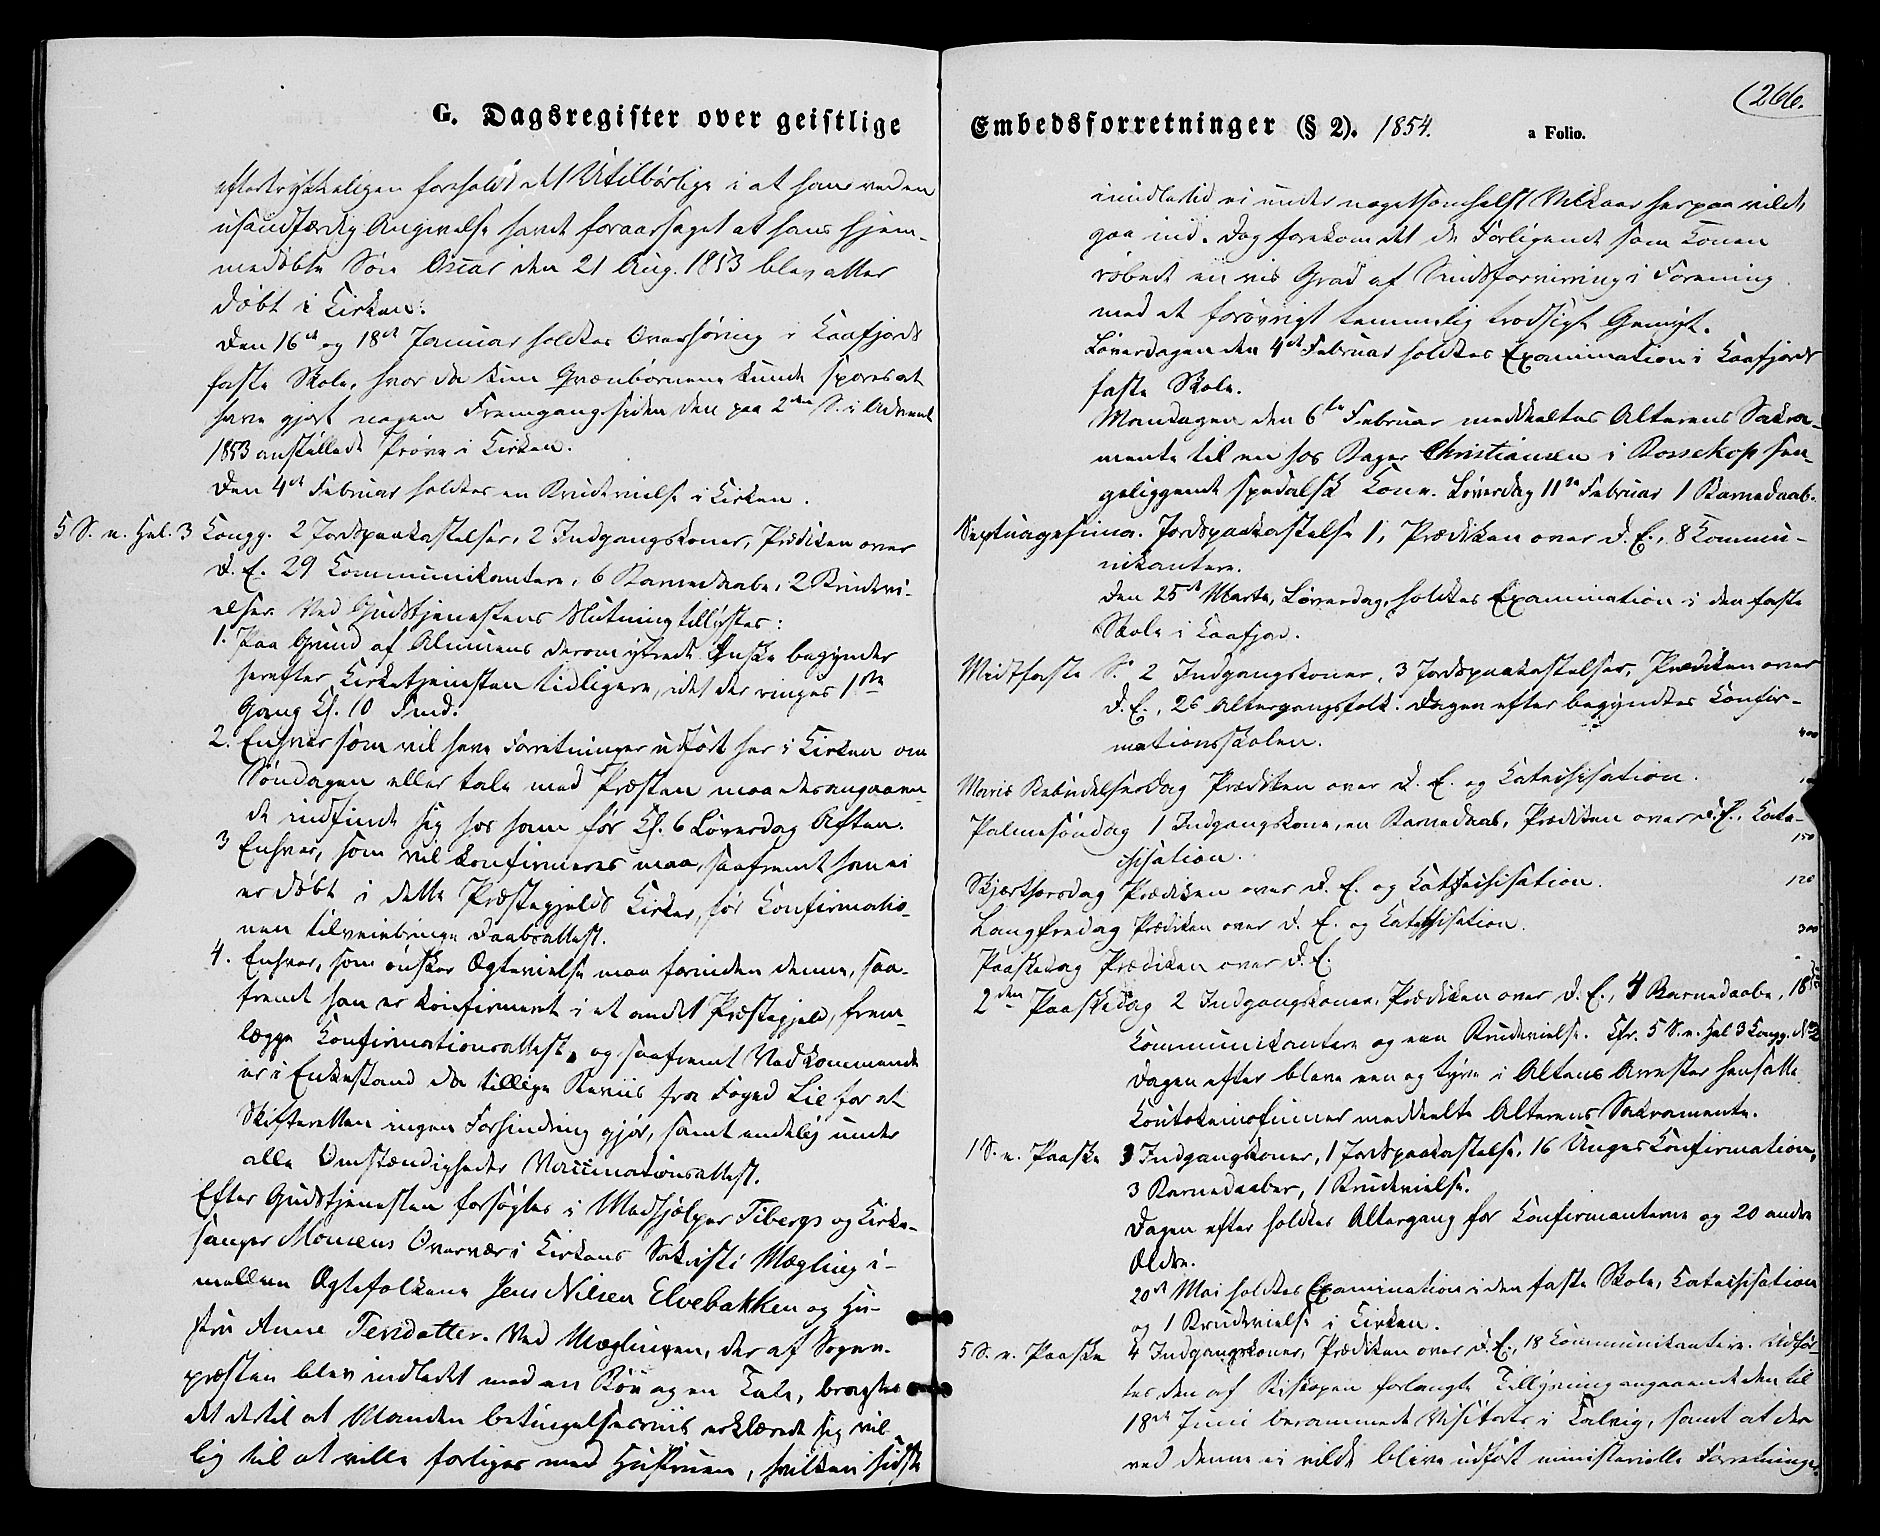 G. Dagsregister over geistlige
eftertrykkeligen foreholdt det Utilbørlige i at han ved en
usandfærdig Angivelse havde foraarsaget at hans hjem-
medøbte Søn Oscar den 21 Aug. 1853 blev atter
døbt i Kirken.
Den 16de og 18de Januar holdtes Overhøring i Kaafjords
faste Skole, hvor da kun Qvænbørnene kunde spores at
have gjort nogen Fremgang siden den paa 2den S. i Advent
1853 anstillede Prøve i Kirken.
Den 4de Februar holdtes en Brudevielse i Kirken.
5 S. e. Hel. 3 Kongg. 2 Jordspaakastelser, 2 Indgangskoner, Prædiken over
d. E. 29 Communikantere, 6 Barnedaabe, 2 Brudevi-
elser. Ved Gudstjenestens Slutning tillystes:
1. Paa Grund af Almuens derom yttrede Ønske begynder
herefter Kirketjenesten tidligere, idet der ringes 1ste
Gang Kl. 10 Fmd.
2. Enhver som vil have Forretninger udført her i Kirken om
Søndagen eller tale med Præsten maa desangaaen-
de indfinde sig hos ham før Kl. 6 Løverdag Aften.
3 Enhver, som vil konfirmeres maa, saafremt han ei
er døbt i dette Præstegjelds Kirker, før Konfirmatio-
nen tilveiebringe Daabsattest.
4. Enhver, som ønsker Ægtevielse maa forinden denne, saa-
fremt han er konfirmeret i et andet Præstegjeld, frem-
lægge Konfirmationsattest, og saafremt Vedkommende
er i Enkestand da tillige Beviis fra Foged Lie for at
Skifteretten ingen Forhindring gjør, samt endelig under
alle Omstændigheder Vaccinationsattest.
Efter Gudstjenesten forsøgtes i Medhjælper Tibergs og Kirke-
sanger Monsens Overvær i Kirkens Sakristi Mægling i-
mellem Ægtefolkene Jens Nilsen Elvebakken og Hu-
stru Anne Tersdatter. Ved Mæglingen, der af Sogne-
præsten blev indledet med en Bøn og en Tale, bragtes
det dertil at Manden betingelsesviis erklærede sig vil
lig til at ville forliges med Hustruen, hvilken sidste
Embedsforretninger (§ 2). 1854. a Folio.
(266.
imidlertid ei under nogetsomhelst Vilkaar herpaa vilde
gaa ind. Dog forekom det de Forligende som Konen
røbede en vis Grad af Sindsforvirring i Forening
med et forøvrigt temmelig trodsigt Gemyt.
Løverdagen den 4de Februar holdtes Examination i Kaafjords
faste Skole.
Mandagen den 6te Februar meddeeltes Alterens Sakra-
mente til en hos Bager Christiansen i Bossekop sen-
geliggende spedalsk Kone. Løverdag 11te Februar 1 Barnedaab.
Septuagesima. Jordspaakastelse 1, Prædiken over d. E., 8 Kommu-
nikantere.
Den 25de Marts, Løverdag, holdtes Examination i den faste
Skole i Kaafjord.
Midtfaste S. 2 Indgangskoner, 3 Jordspaakastelser, Prædiken over
d. E., 26 Altergangsfolk. Dagen efter begyndtes Konfir-
mationsskolen.
400
Mariæ Bebudelsesdag Prædiken over d. E. og Katechisation.
Palmesøndag 1 Indgangskone, en Barnedaab, Prædiken over d. E., Kate-
150
chisation.
Skjærthorsdag Prædiken over d. E. og Katechisation.
120
Langfredag Prædiken over d. E. og Katechisation.
300
Paaskedag Prædiken over d. E.
2den Paaskedag 2 Indgangskoner, Prædiken over d. E., 4 Barnedaabe, 18
Kommunikantere og een Brudevielse. Cfr. 5 S. e. Hel 3 Kongg.
Dagen efter bleve een og tyve i Altens Arrester hensatte
Koutokeinofinner meddeelte Alterens Sakramente.
1 S. e. Paaske 3 Indgangskoner, 1 Jordspaakastelse, 16 Unges Konfirmation,
3 Barnedaaber, 1 Brudevielse.
Dagen efter holdtes Altergang for Konfirmanterne og 20 andre
Ældre.
20de Mai holdtes Examination i den faste Skole, Katechisation
og 1 Brudevielse i Kirken.
5 S. e. Paaske 4 Indgangskoner, Prædiken over d. E., 18 Kommunikantere. Udfør-
tes den af Biskopen forlangte Tillysning angaaende den til
18de Juni berammede Visitats i Talvig, samt at der
ved denne ei vilde blive udført ministerielle Forretninger.